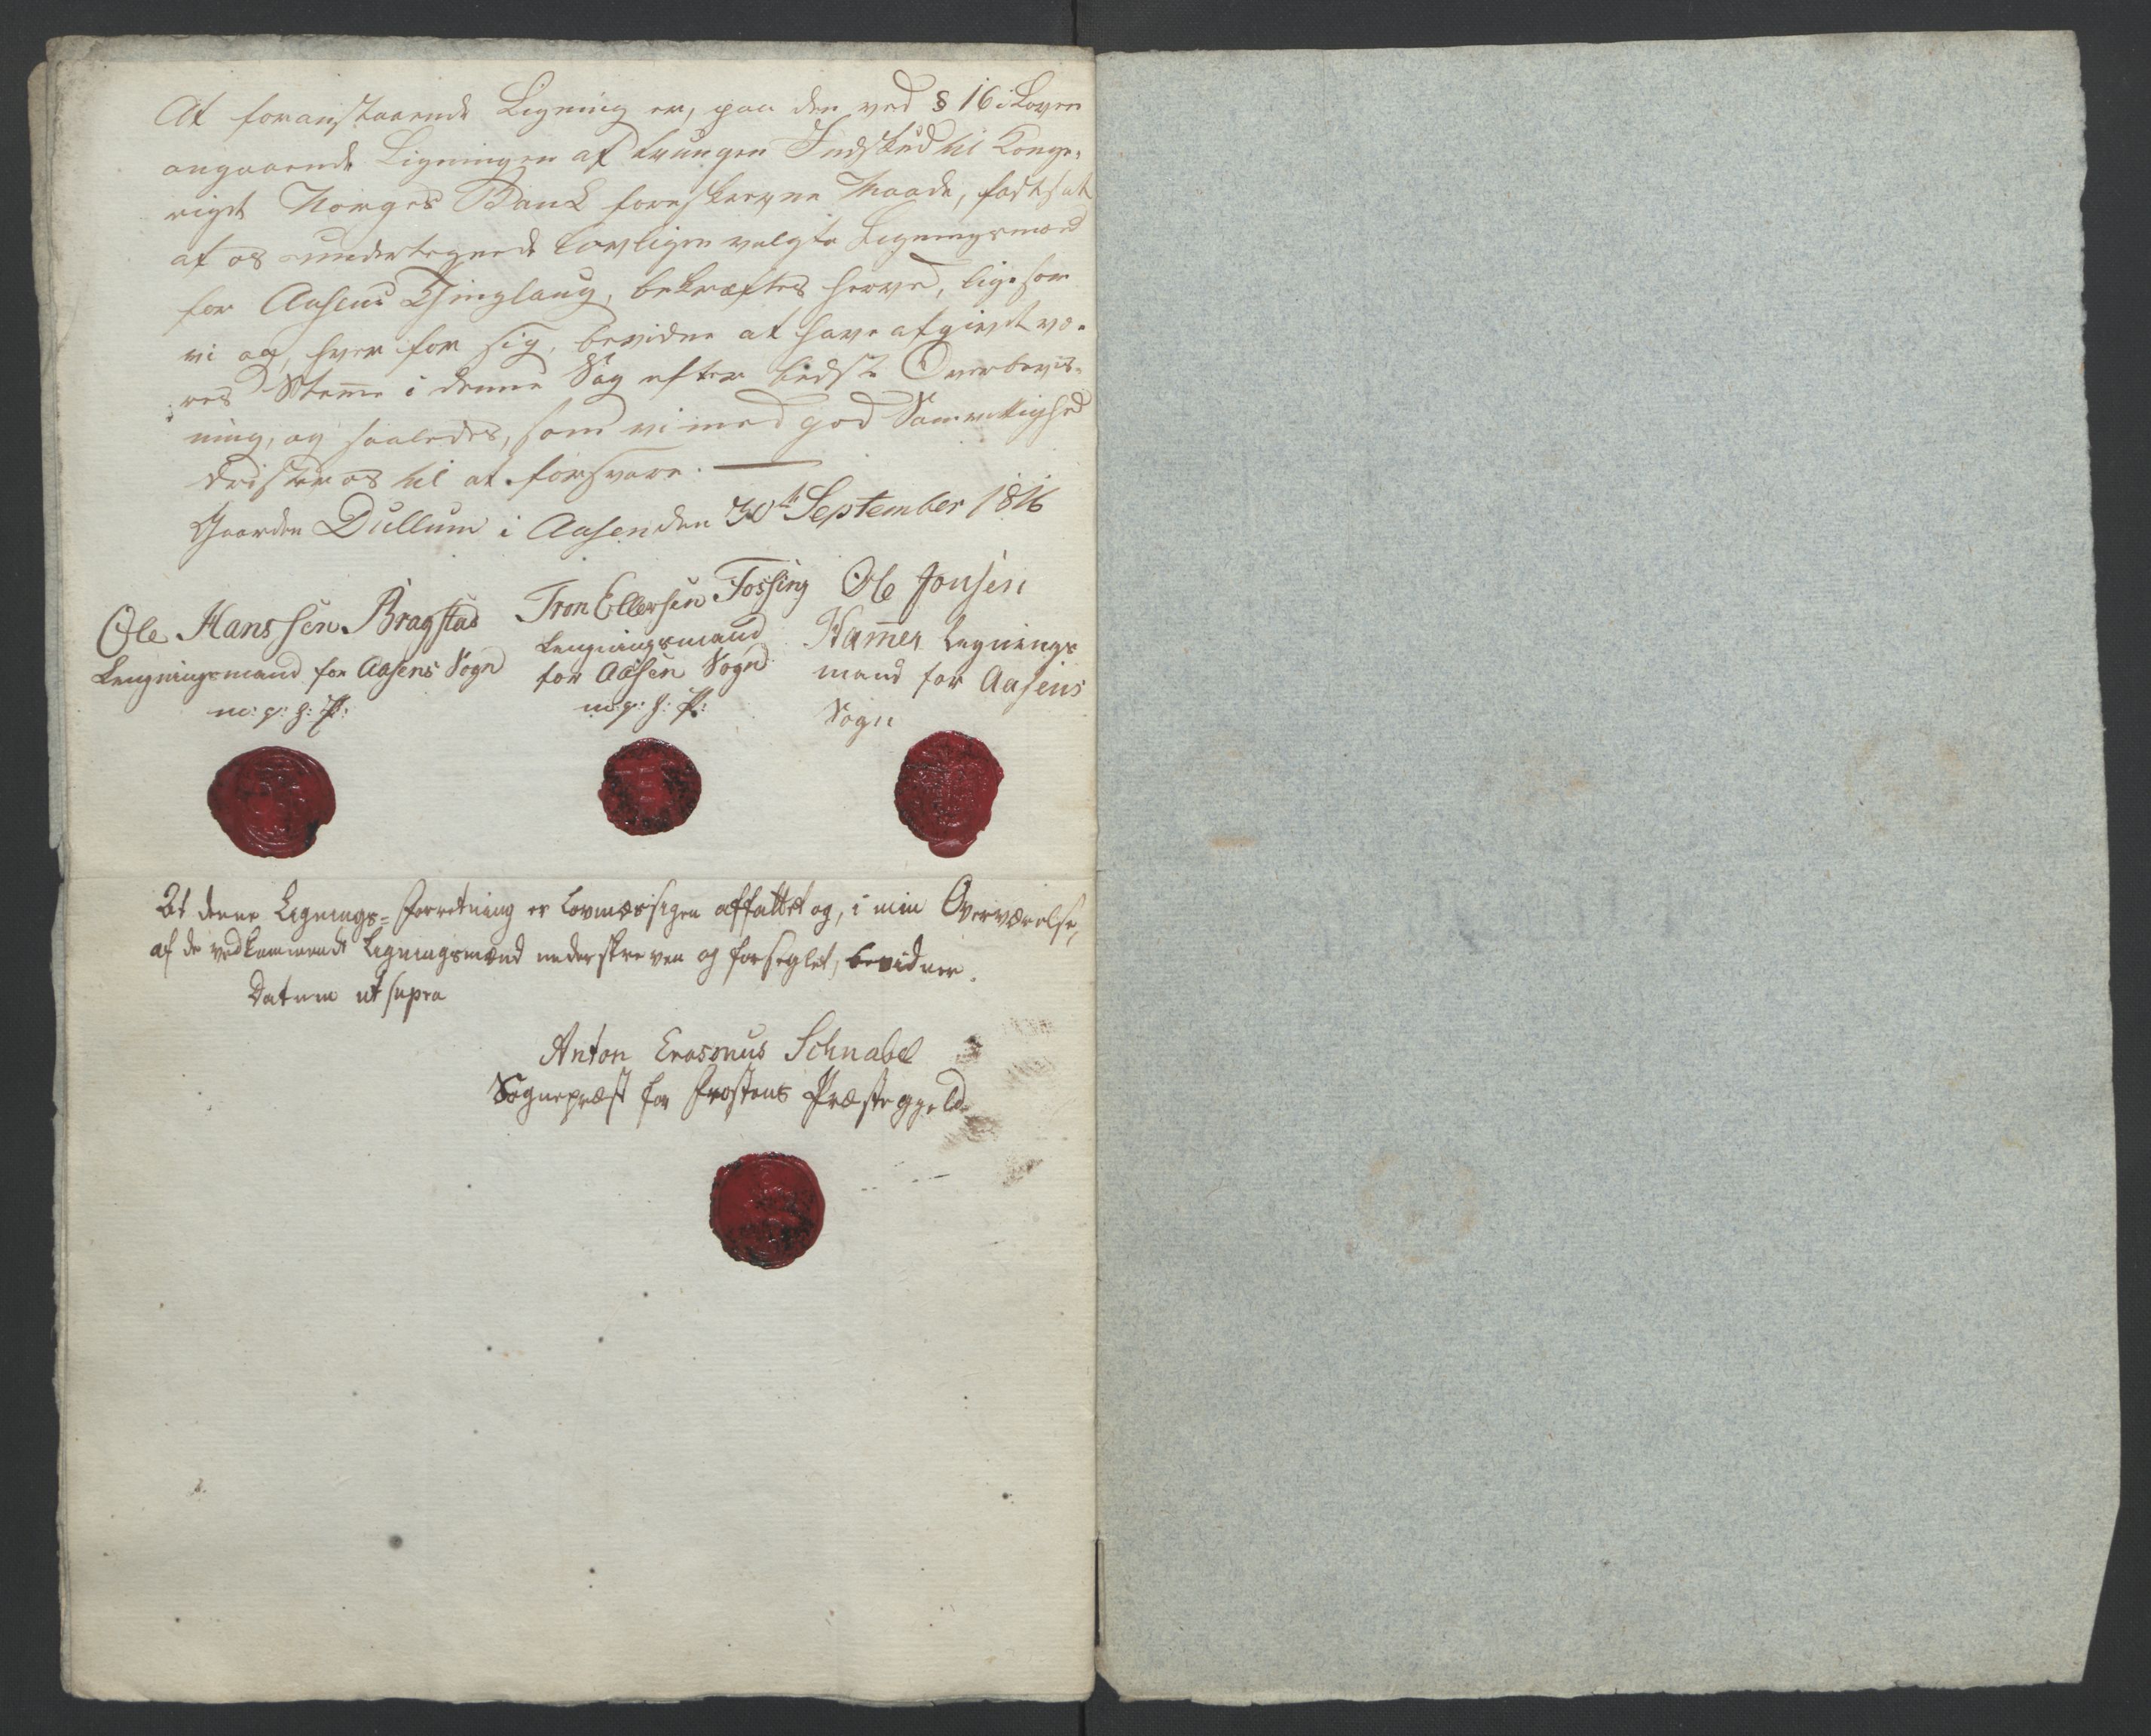 At foranstaaende Ligning er, paa den ved § 16 i Loven
angaaende Ligningen af tvungen Indskud til Konge-
riget Norges Bank foreskrevne Maade, fastsat
af os undertegnede lovligen valgte Ligningsmænd
for Aasens Thinglaug, bekræftes herved, ligesom
vi og, hver for sig, bevidne at have afgivet vo-
res Stem̄e i denne Sag efter bedste Overbeviis-
ning, og saaledes, som vi med god Samvittighed
drister os til at forsvare. —
Gaarden Dullum i Aasen den 30te September 1816
Ole Hanssen Bragstad Tron Ellersen Fossing Ole Jonsen
Legningsmand for Aasens Sogn Legningsmand for Aasen Sogn Ham̄er Legnings
mand for Aasens
m: p: h: P: m: p: h: P: Sogn
At denne Lignings=Forretning er lovmæssigen affattet og, i min Overværelse,
af de vedkommende Ligningsmænd underskreven og forseglet, bevidner.
Datum ut supra
Anton Erasmus Schnabel
Sognepræst for Frostens Præstegjeld